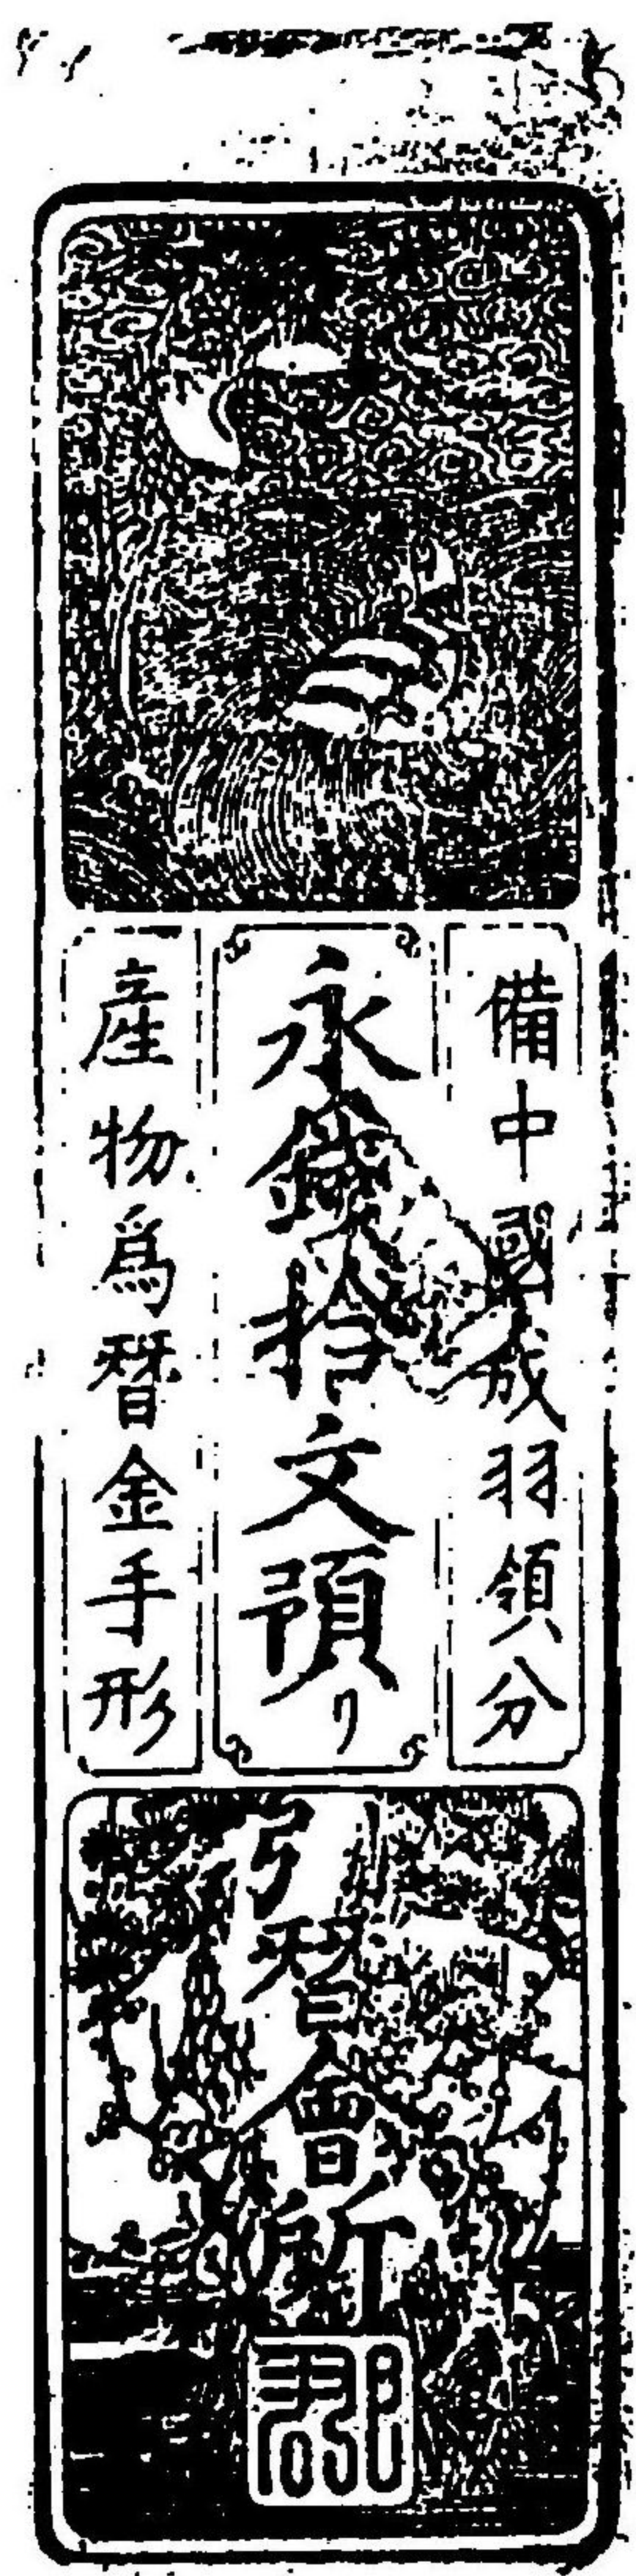 備中國成羽領分
永錢拾文預リ
產物爲替金手形
引替會所